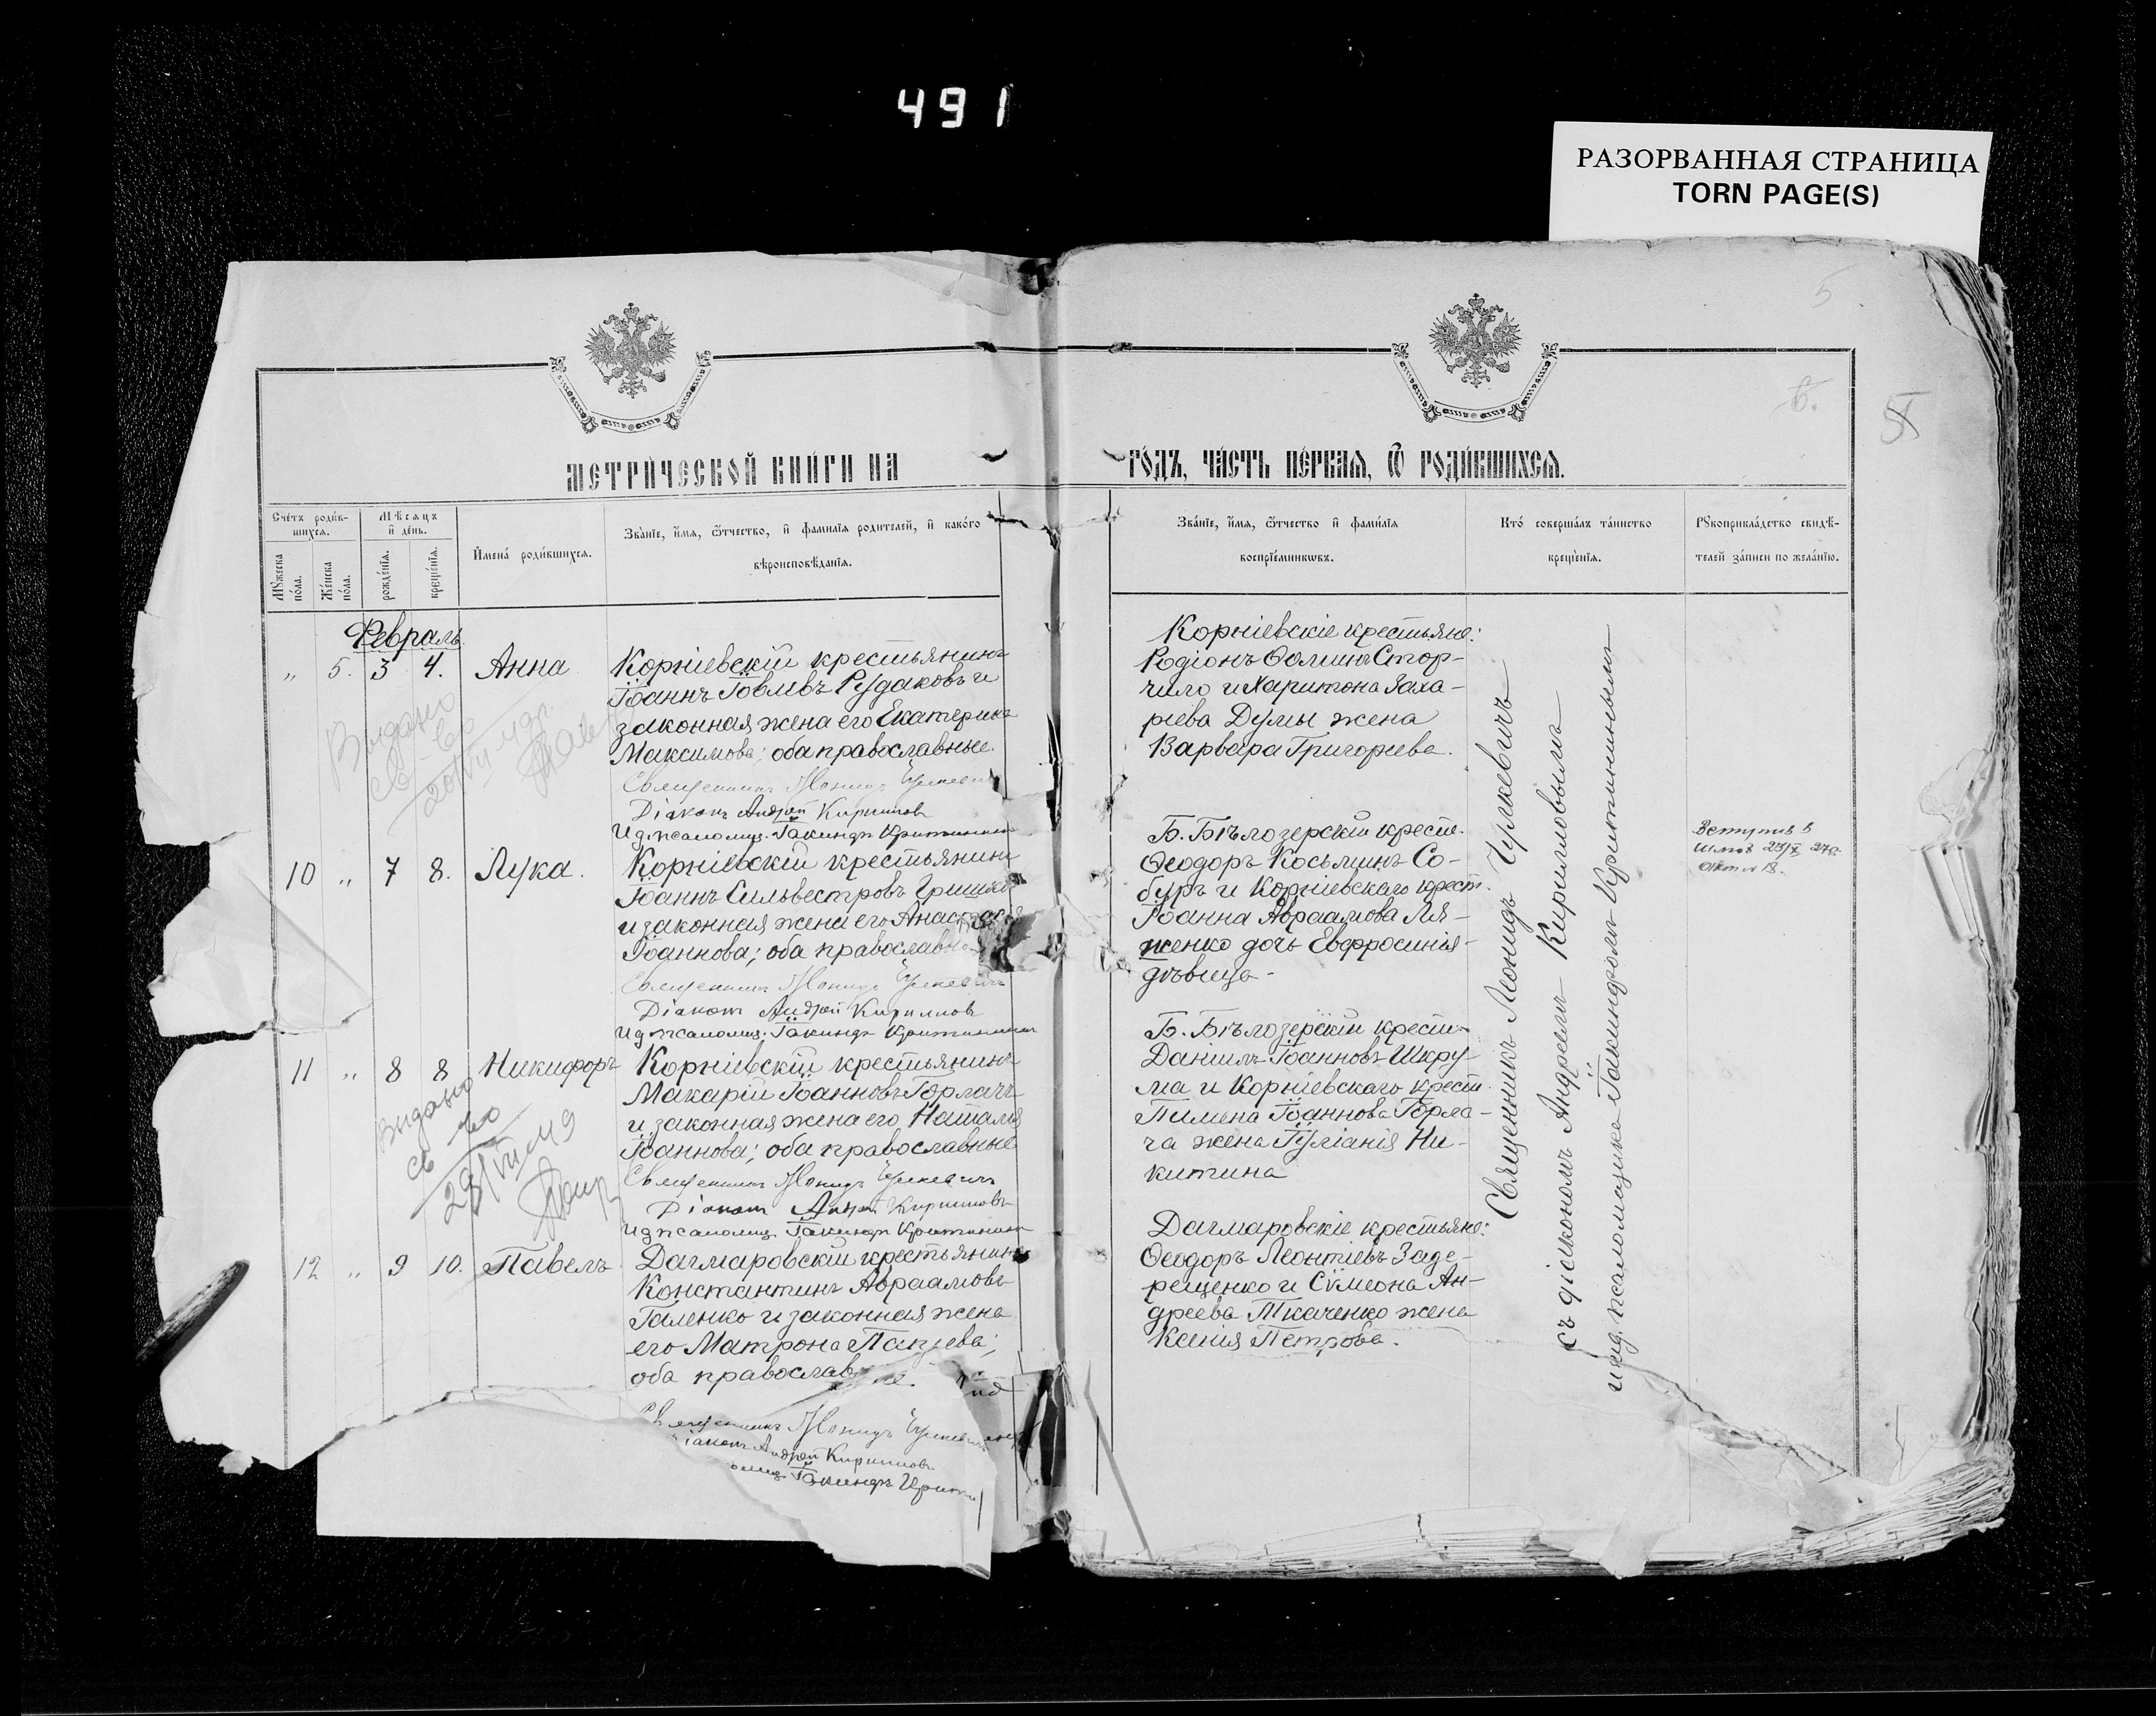 491
РАЗОРВАННАЯ СТРАНИЦА
TORN PAGE(S)
5
МЕТРИ́ЧЕСКОЙ КНИ́ГИ НА
ГО́ДЪ, ЧА́СТЬ ПЕ́РВАЯ, Ѿ РОДИ́ВШИХСЯ.
Сче́тъ роди́в-
шихся.
Мѣсяцъ
и де́нь.
Мꙋжеска
по́ла.
Же́нска
по́ла.
рожде́нїя.
креще́нїя.
Имена́ роди́вшихся.
Зва́нїе, и́мя, ѻ́тчество, и фами́лїя родителей, и како́го
вѣроисповѣ́данїя.
Зва́нїе, и́мя, ѻ́тчество и фами́лїя
воспрїе́мникѡвъ.
Кто́ соверша́лъ та́инство
креще́нїя.
Рꙋкоприкла́дство свидѣ́-
телей за́писи по жела́нїю.
Февраль
„ 5. 3 4. Анна
Корніевскій крестьянинъ
Іоаннъ Іовлевъ Рудаковъ и
законная жена его Екатерина
Максимова; оба православные.
Священникъ Леонидъ Чулкевичъ
Діаконъ Андрей Кирилловъ
И д псаломщ. Іакинфъ Критининъ
Корніевскіе крестьяне:
Родіонъ Ѳоминъ Стор-
чило и Харитона Заха-
ріева Думы жена
Варвара Григорьева.
Выдано
св-во
10 „ 7 8. Лука.
Корніевскій крестьянинъ
Іоаннъ Сильвестровъ Гришко
и законная жена его Анастасія
Іоаннова; оба православные
Священникъ Леонидъ Чулкевичъ
Діаконъ Андрей Кирилловъ
И д псаломщ. Іакинфъ Критининъ
Б. Бѣлозерскій крест.
Ѳеодоръ Косьминъ Со-
буръ и Корніевскаго крест.
Іоанна Авраамова Ля-
женко дочь Евфросинія-
дѣвица-
11 „ 8 8 Никифоръ
Корніевскій крестьянинъ
Макарій Іоанновъ Горлачъ
и законная жена его Наталія
Іоаннова; оба православные
Священникъ Леонидъ Чулкевичъ
Діаконъ Андрей Кирилловъ
И д псаломщ Іакинфъ Критининъ
Б. Бѣлозерскій крест.
Даніилъ Іоанновъ Шкру-
ма и Корніевскаго крест.
Пимена Іоаннова Горла-
ча жена Іуліанія Ни-
китина
Выдано
св-во
12 „ 9 10. Павелъ
Дагмаровскій крестьянинъ
Константинъ Авраамовъ
Галенко и законная жена
его Матрона
оба православные.
Священникъ Леонидъ Чулкевичъ
Діаконъ Андрей Кирилловъ
Іакинфъ
Дагмаровскіе крестьяне:
Ѳеодоръ Леонтіевъ Заде-
рещенко и Сѵмеона Ан-
дреева Ткаченко жена
Ксенія Петрова.
Священникъ Леонидъ Чулкевичъ
съ діакономъ Андреемъ Кирилловымъ
и и.д. псаломщика Іакинфомъ Критининымъ